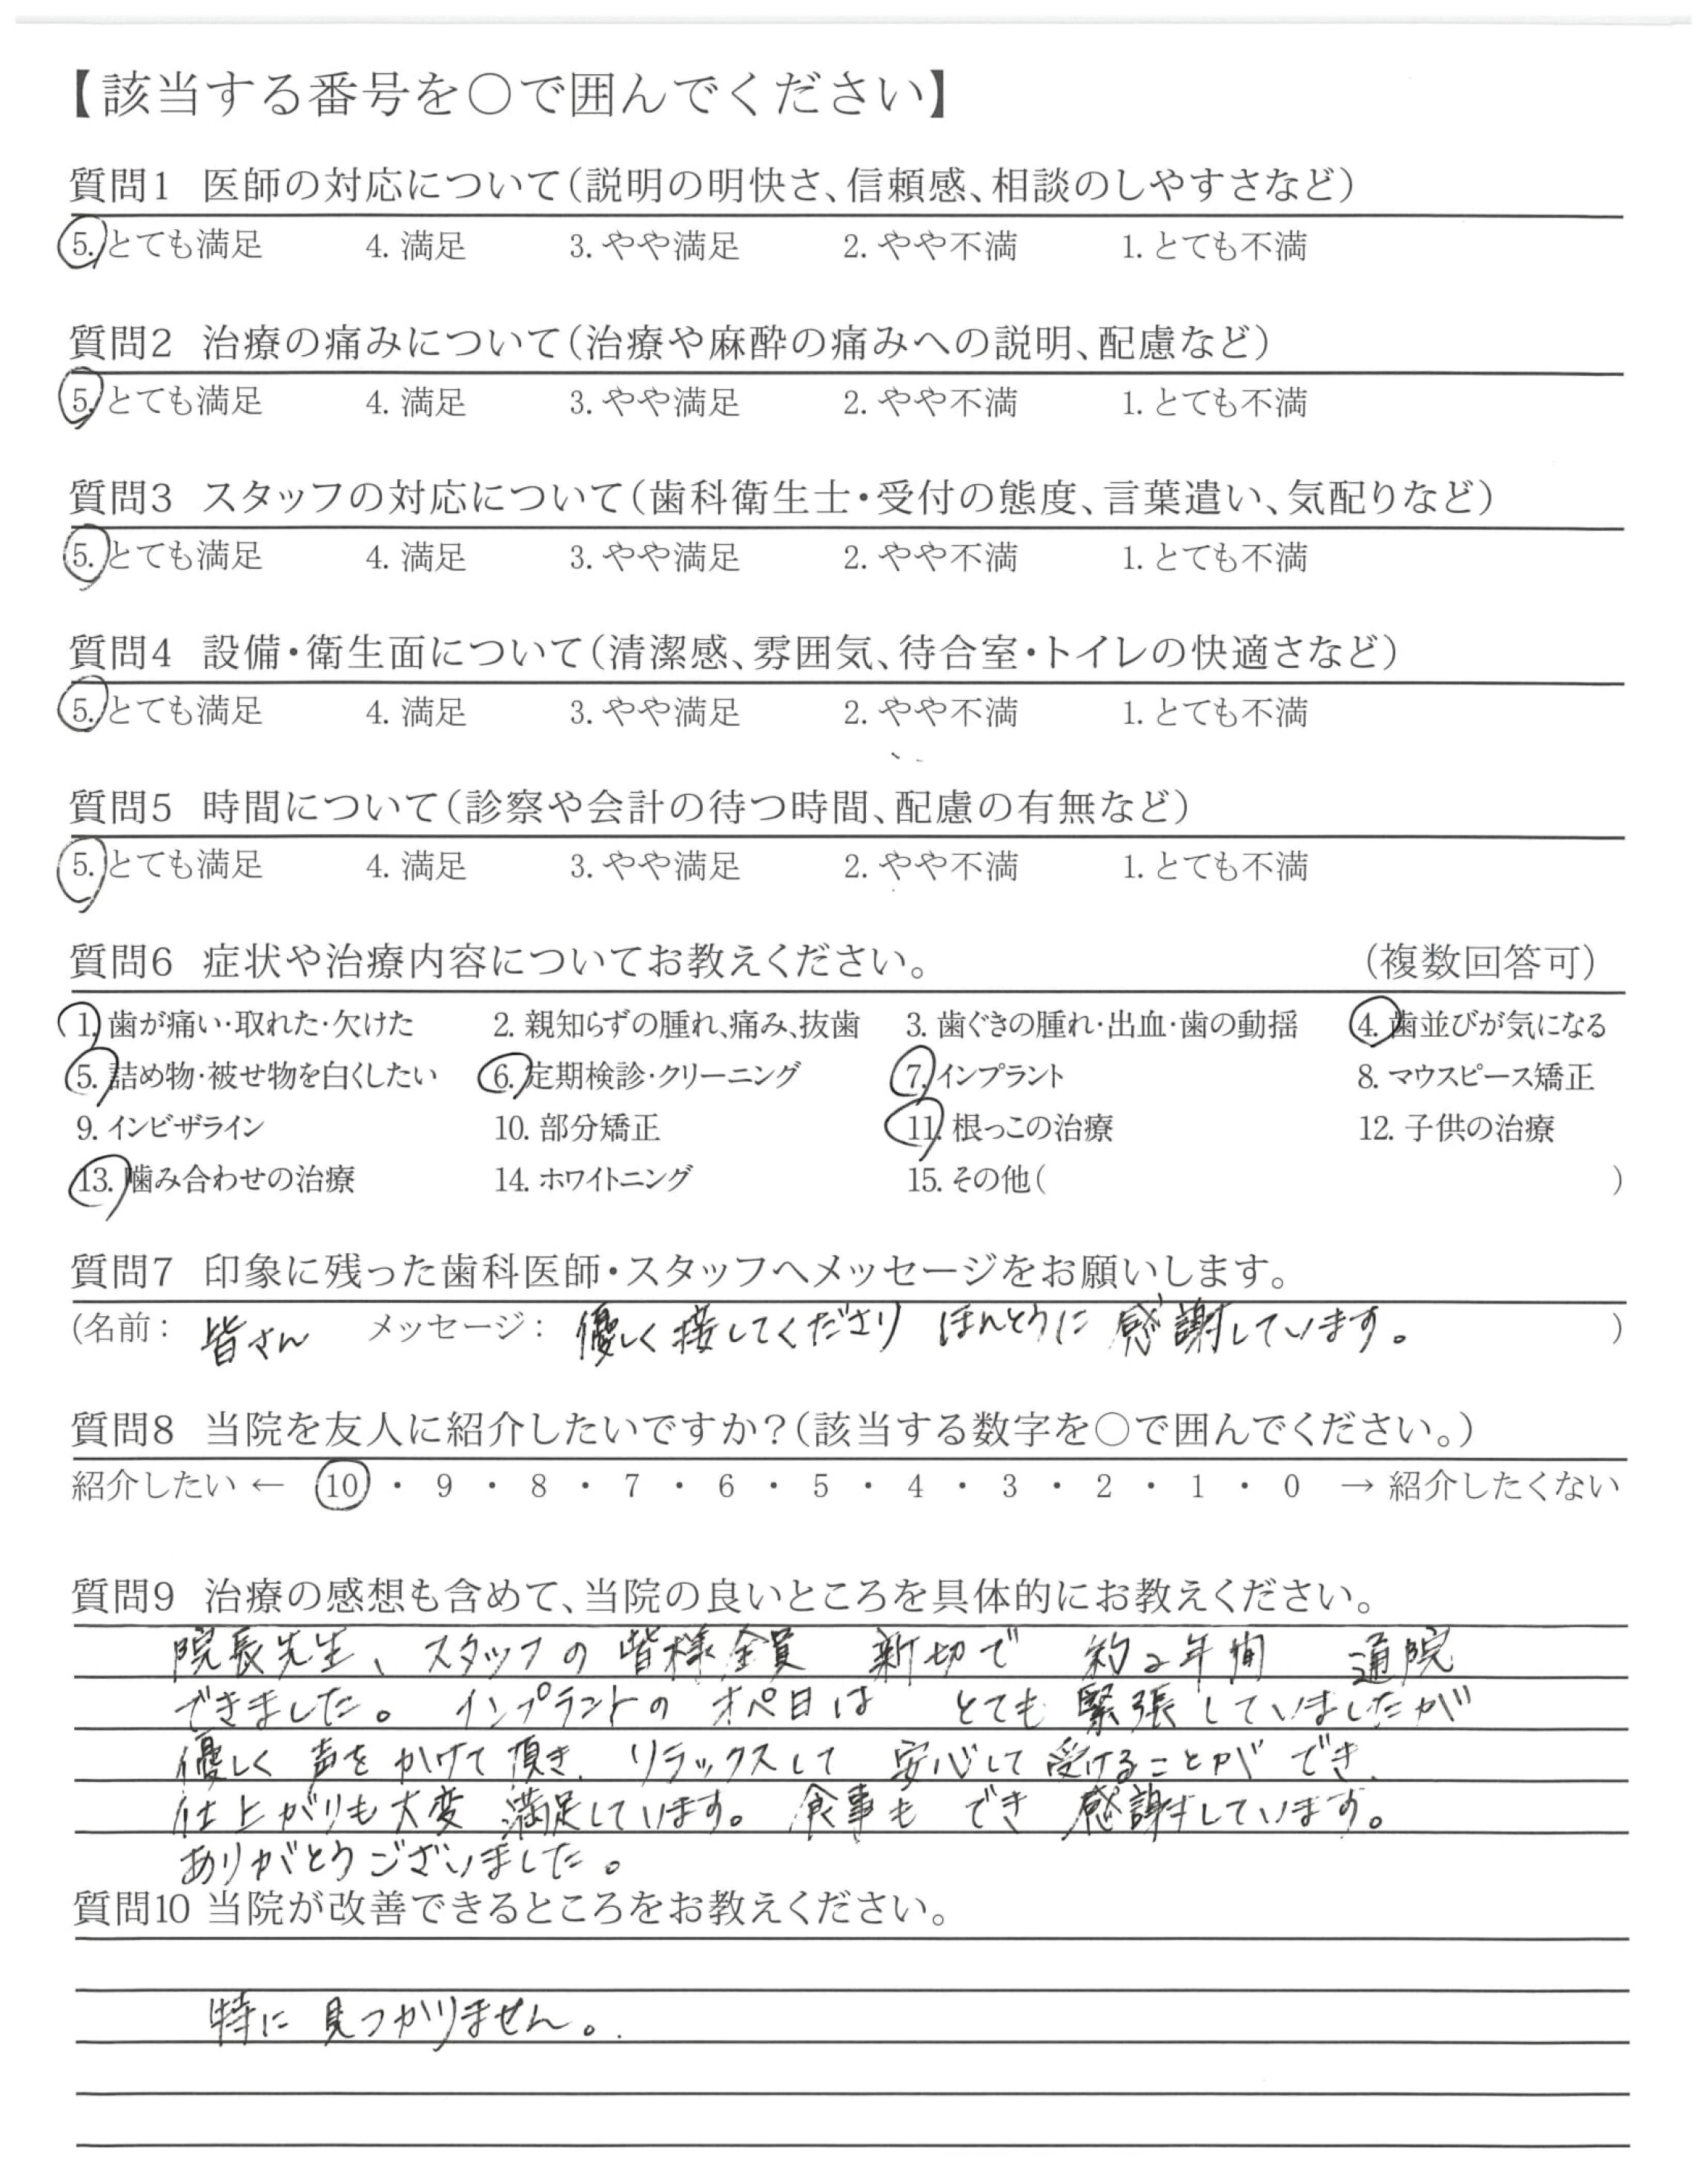 【該当する番号を○で囲んでください】
質問1 医師の対応について(説明の明快さ、信頼感、相談のしやすさなど)
5. とても満足 4. 満足 3. やや満足 2. やや不満 1. とても不満
質問2 治療の痛みについて(治療や麻酔の痛みへの説明、配慮など)
5. とても満足 4. 満足 3. やや満足 2. やや不満 1. とても不満
質問3 スタッフの対応について(歯科衛生士・受付の態度、言葉遣い、気配りなど)
5. とても満足 4. 満足 3. やや満足 2. やや不満 1. とても不満
質問4 設備・衛生面について(清潔感、雰囲気、待合室・トイレの快適さなど)
5. とても満足 4. 満足 3. やや満足 2. やや不満 1. とても不満
質問5 時間について(診察や会計の待つ時間、配慮の有無など)
5. とても満足 4. 満足 3. やや満足 2. やや不満 1. とても不満
質問6 症状や治療内容についてお教えください。 (複数回答可)
1. 歯が痛い・取れた・欠けた 2. 親知らずの腫れ、痛み、抜歯 3. 歯ぐきの腫れ・出血・歯の動揺 4. 歯並びが気になる
5. 詰め物・被せ物を白くしたい 6. 定期検診・クリーニング 7. インプラント 8. マウスピース矯正
9. インビザライン 10. 部分矯正 11. 根っこの治療 12. 子供の治療
13. 噛み合わせの治療 14. ホワイトニング 15. その他( )
質問7 印象に残った歯科医師・スタッフへメッセージをお願いします。
(名前: 皆さん メッセージ: 優しく接してくださり ほんとうに 感謝しています。 )
質問8 当院を友人に紹介したいですか?(該当する数字を○で囲んでください。)
紹介したい ← 10 ・ 9 ・ 8 ・ 7 ・ 6 ・ 5 ・ 4 ・ 3 ・ 2 ・ 1 ・ 0 → 紹介したくない
質問9 治療の感想も含めて、当院の良いところを具体的にお教えください。
院長先生、スタッフの 皆様全員 親切で 約2年間 通院
できました。 インプラントの オペ日は とても 緊張していましたが
優しく 声を かけて 頂き、リラックスして 安心して 受けることが でき、
仕上がりも大変 満足しています。 食事も でき 感謝しています。
ありがとうございました。
質問10 当院が改善できるところをお教えください。
特に 見つかりません。